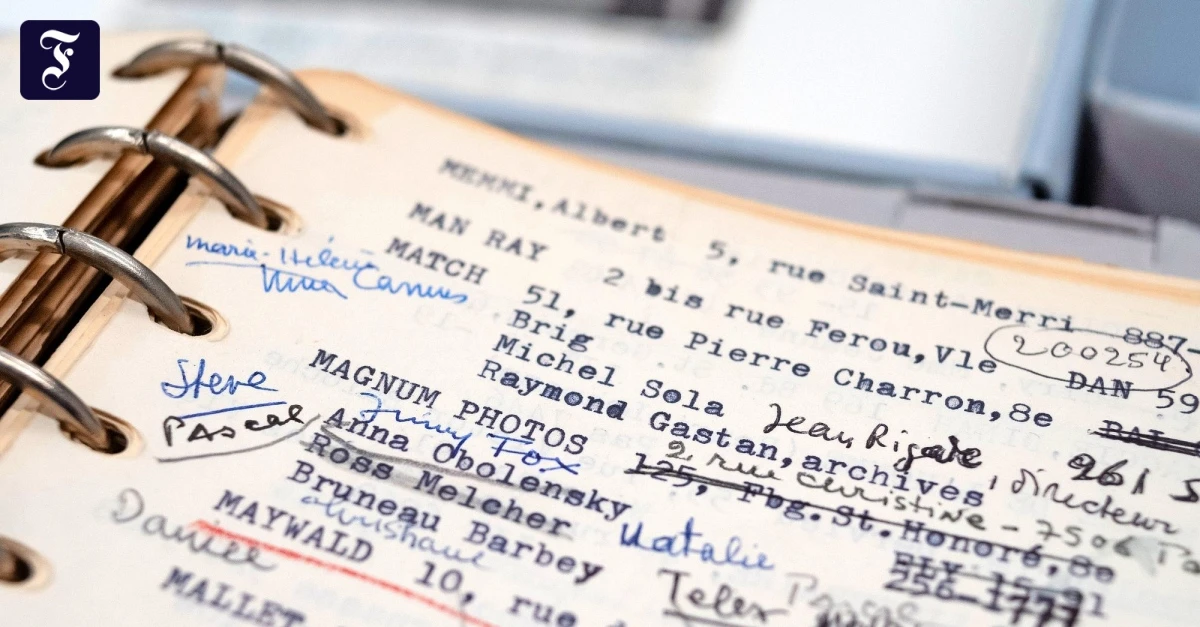 F
MEMMI, Albert 5, rue Saint-Merri 887-
MAN RAY 2 bis rue Ferou, VIe DAN 59
200254
MATCH 51, rue Pierre Charron, 8e
marie-Hélène
Camus
Brig
Michel Sola Jean Rigade, directeur
Raymond Gastan, archives 961 5
Steve
MAGNUM PHOTOS 125, Fbg. St. Honoré, 8e
2 rue Christine - 7500
Jimmy Fox
Pascal
Anna Obolensky
256-1771
Ross Melcher Natalie
Bruneau Barbey Telex
MAYWALD 10, rue
MALLET